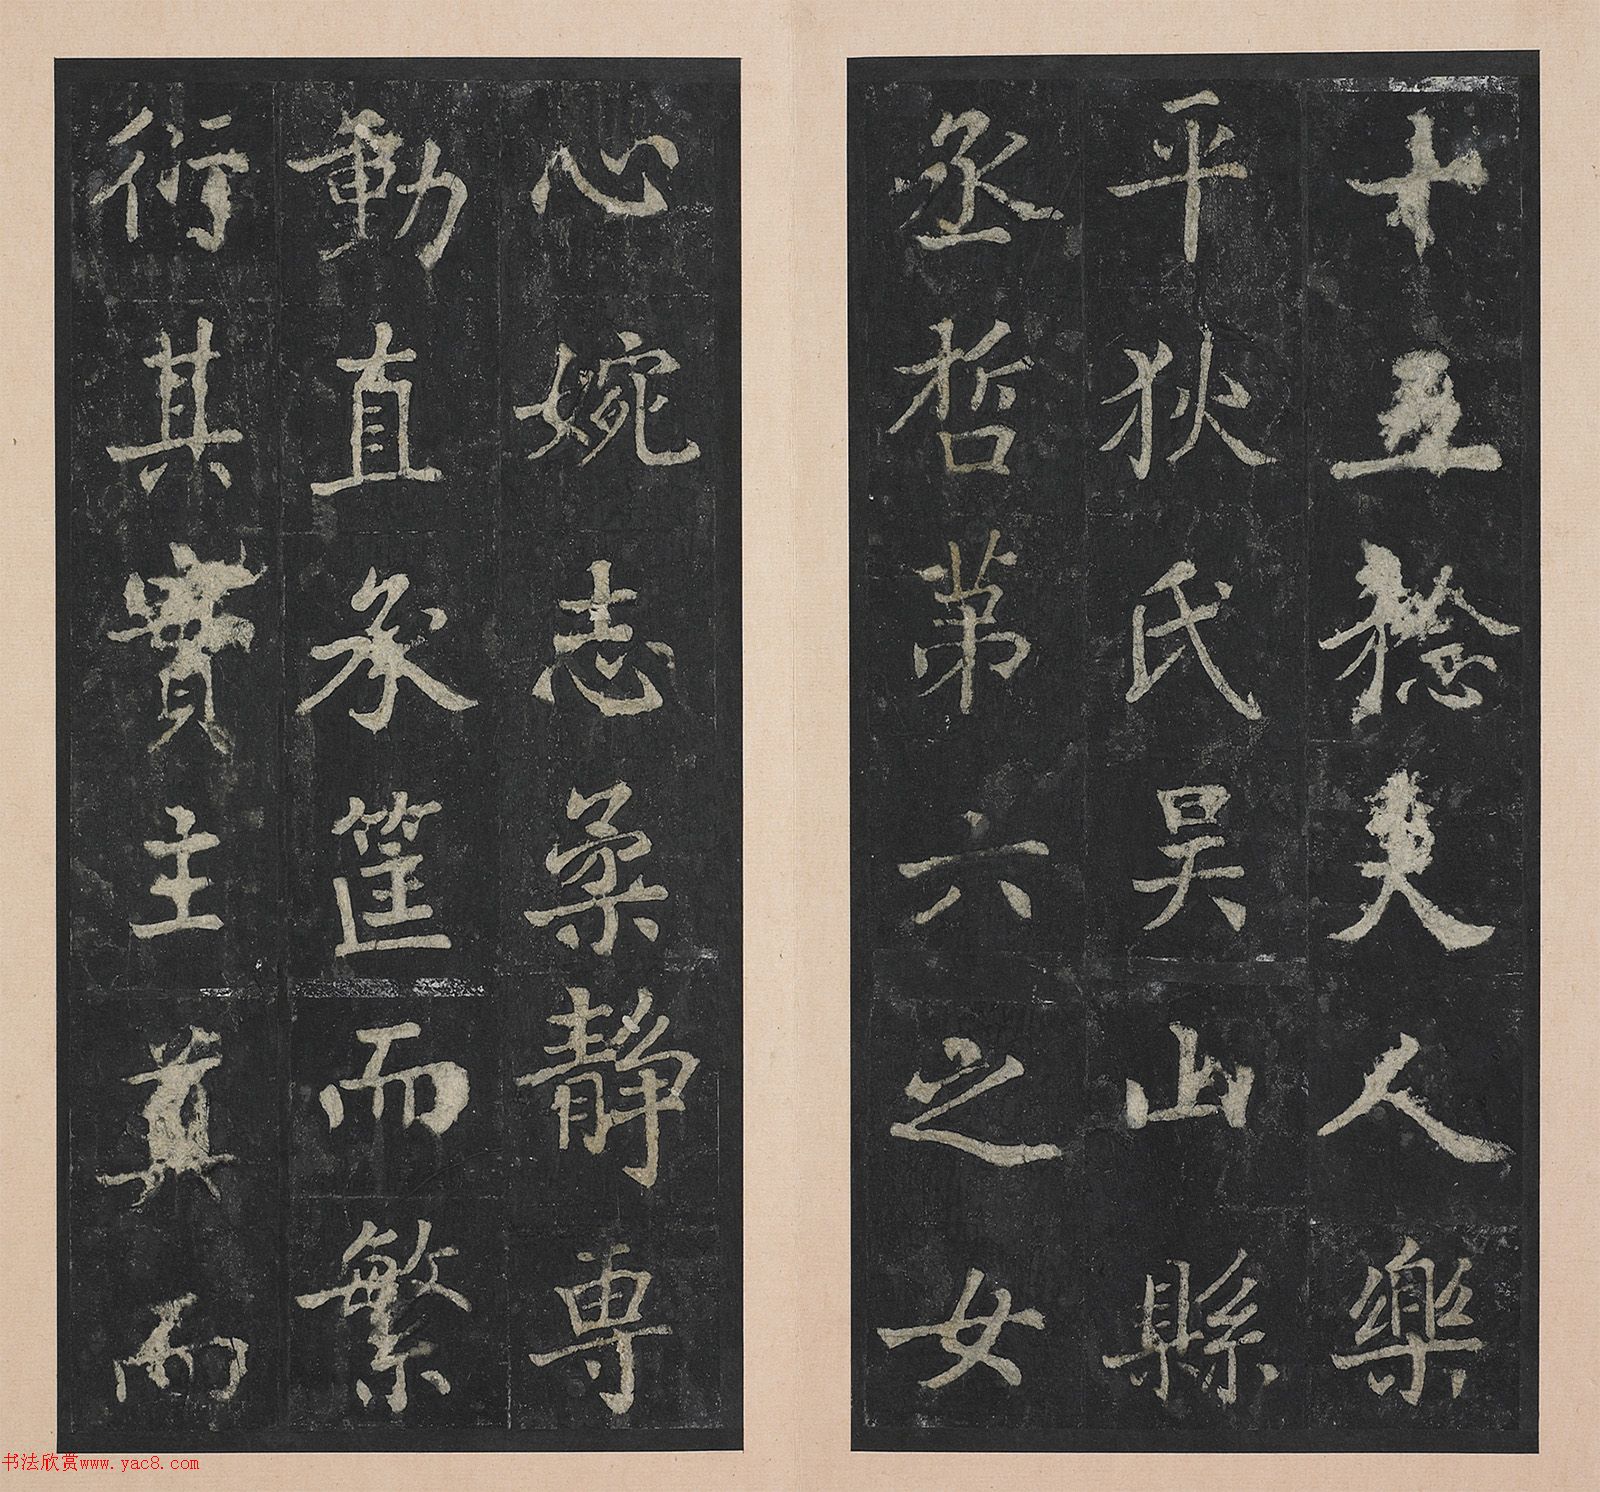 十五稔夫人樂
平狄氏昊山縣
丞哲第六之女
心婉志柔靜専
動直承筐而繁
衍其實主奠而
书法欣赏www.yac8.com